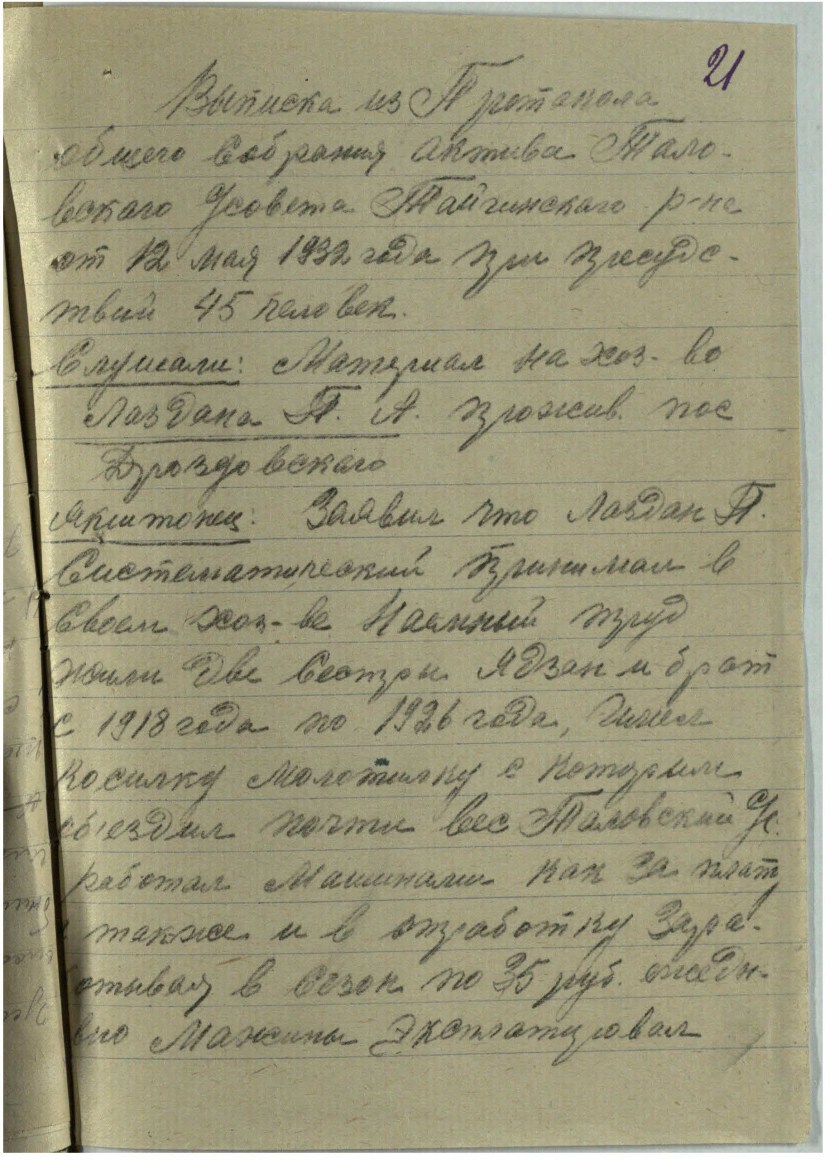 21
Выписка из Протокола
общего собрания актива Тало-
вского Усовета Тайгинского р-на
от 12 мая 1932 года при пресудс-
твий 45 человек.
Слушали: Материал на хоз-во
Лаздана П. А. прожив. пос
Дроздовского
Якштонец: Заявил что Лаздан П.
Систематический принимал в
своем хоз-ве Наемный труд
жили две сестры Ядзан и брат
с 1918 года по 1926 года, имел
Косилку молотилку с которыми
объездил почти вес Таловский Ус.
работал Машинами как за плату
и также и в отработку Зара-
ботывая в сезон по 35 руб. ежедн-
вно Мажины Эксплатировал